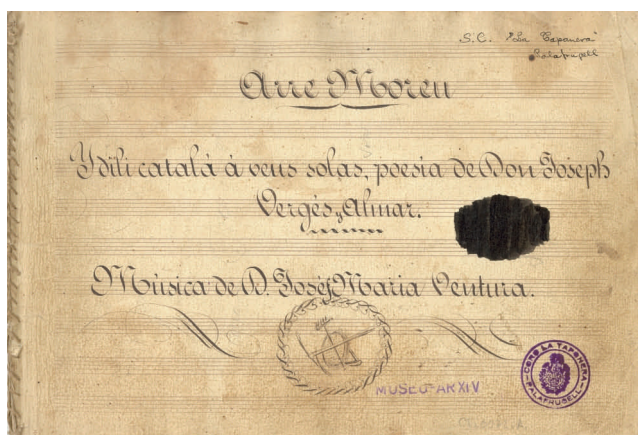 S.C. "La Taponera"
Palafrugell
Arre Moreu
Ydili catalá á veus solas, poesia de Don Joseph
Vergés y Almar.
Música de D. José Maria Ventura.
MUSEO-ARXIV
CORO LA TAPONERA
PALAFRUGELL